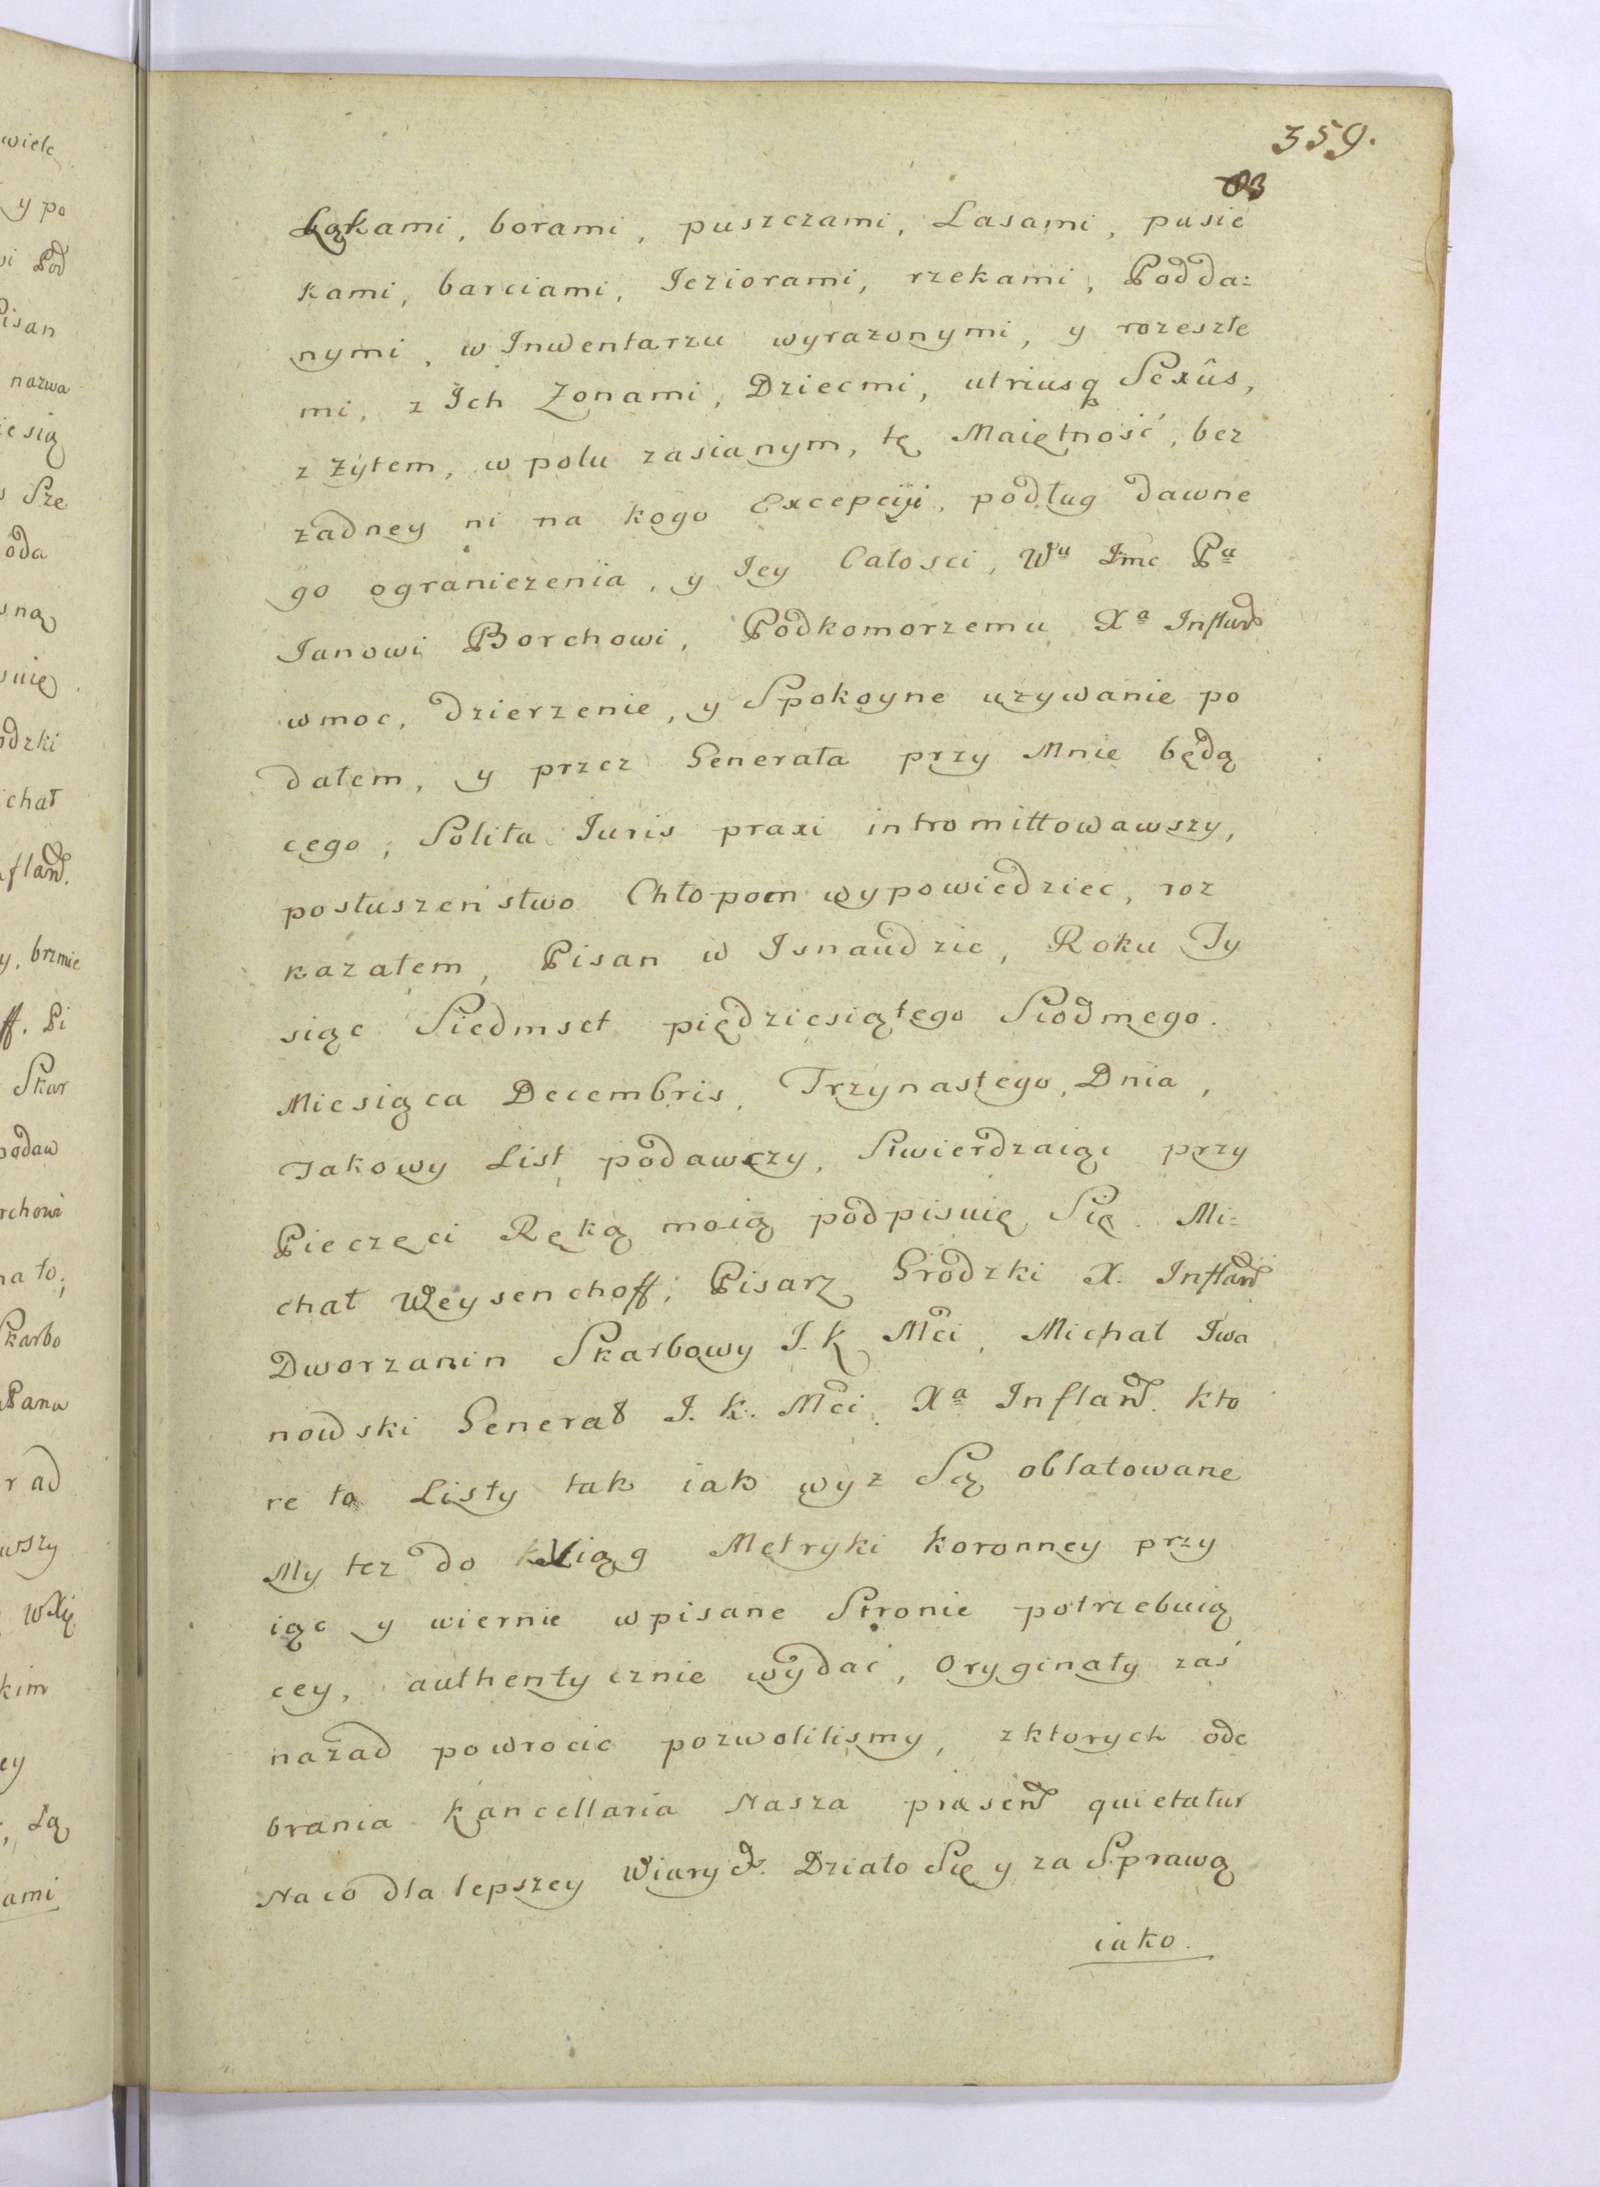 359.
Łąkami, borami, puszczami, Lasami, pasie
kami, barciami, Ieziorami, rzekami, Podda:
nymi, w Inwentarzu wyrazonymi, y rozeszłe
mi, z Ich Zonami, Dziecmi, utriusq Sexûs,
z żytem, w polu zasianym, tę Maiętność, bez
zadney ni na kogo Excepciji, podług dawne
go ograniczenia, y Iey Całosci, Wu Imc Pu
Ianowi Borchowi, Podkomorzemu Xa Infland
wmoc, dzierzenie, y Spokoyne uzywanie po
dałem, y przez Generała przy Mnie będą
cego, Solita Iuris praxi intromittowawszy,
posłuszeństwo Chłopom wypowiedziec, roz
kazałem, Pisan w Isnaudzie, Roku Ty
siąc Siedmset piędziesiątego Siodmego.
Miesiąca Decembris, Trzynastego, Dnia,
Takowy List podawczy, Stwierdzaiąc przy
Pieczęci Ręką moią podpisuię Się. Mi:
chał Weysenchoff, Pisarz Grodzki X. Infland
Dworzanin Skarbowy I. K Mci, Michał Iwa
nowski Generał I. K. Mci Xa Infland. kto
re to Listy tak iak wyz Są oblatowane
My tez do Xiąg Metryki koronney przy
iąc y wiernie wpisane Stronie potrzebuią
cey, authentycznie wydać, Oryginały zaś
nazad powrocic pozwolilismy, zktorych ode
brania Kancellaria Nasza præsend quietatur
Na co dla lepszey Wiary &. Działo Się y za Sprawą
iako.
wiele
y po
Pod
Pisan
nazwa
Sze
oda
odzki
chał
fland.
y, brzmie
ff. Pi
Skar
podaw
rchowi
na to,
Skarbo
Pana
r ad
wszy
kim
ey
ami